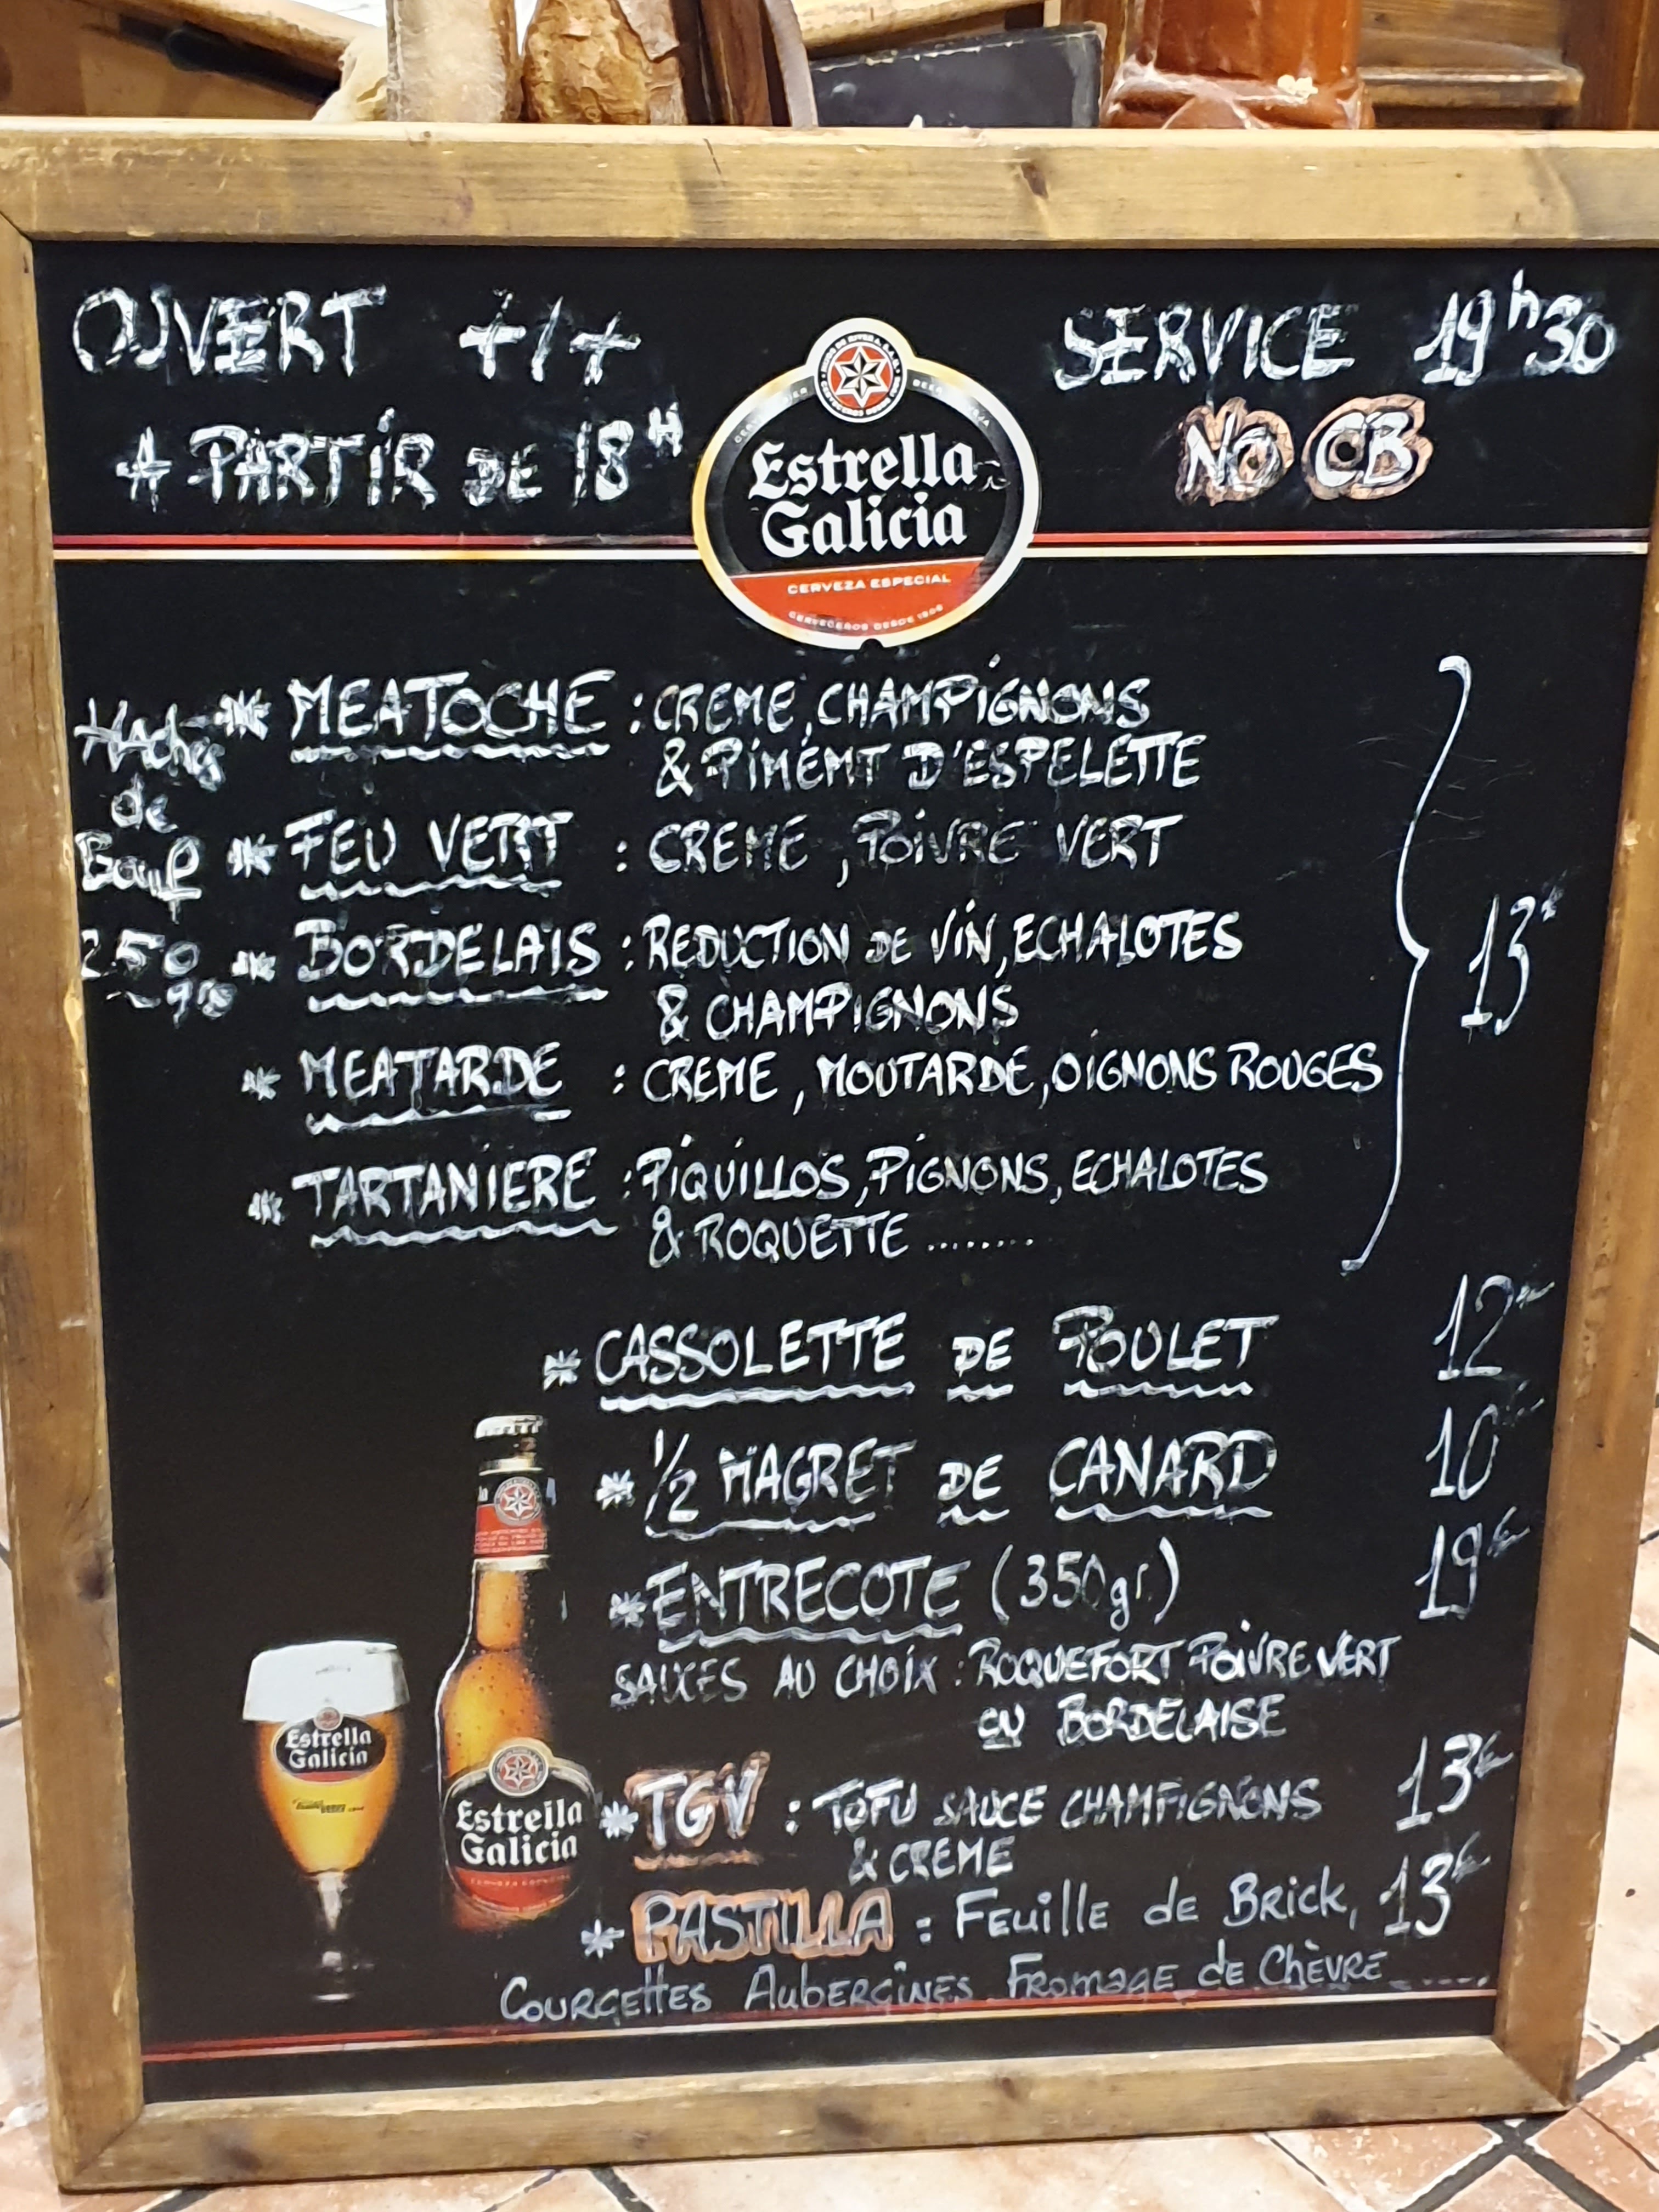 OUVERT 7/7
A PARTIR DE 18H
SERVICE 19h30
NO CB
Estrella
Galicia
CERVEZA ESPECIAL
CERVECEROS DESDE 1906
Hachés
de
Boeuf
250
gr
* MEATOCHE : CREME, CHAMPIGNONS
& PIMENT D'ESPELETTE
* FEU VERT : CREME, POIVRE VERT
* BORDELAIS : REDUCTION DE VIN, ECHALOTES
& CHAMPIGNONS
* MEATARDE : CREME, MOUTARDE, OIGNONS ROUGES
* TARTANIERE : PIQUILLOS, PIGNONS, ECHALOTES
& ROQUETTE ........
13€
* CASSOLETTE DE POULET 12€
* 1/2 MAGRET DE CANARD 10€
* ENTRECOTE (350gr) 19€
SAUCES AU CHOIX : ROQUEFORT POIVRE VERT
OU BORDELAISE
* TGV : TOFU SAUCE CHAMPIGNONS 13€
& CREME
* PASTILLA : Feuille de Brick, 13€
Courgettes Aubergines Fromage de Chèvre .....
Estrella
Galicia
Estrella
Galicia